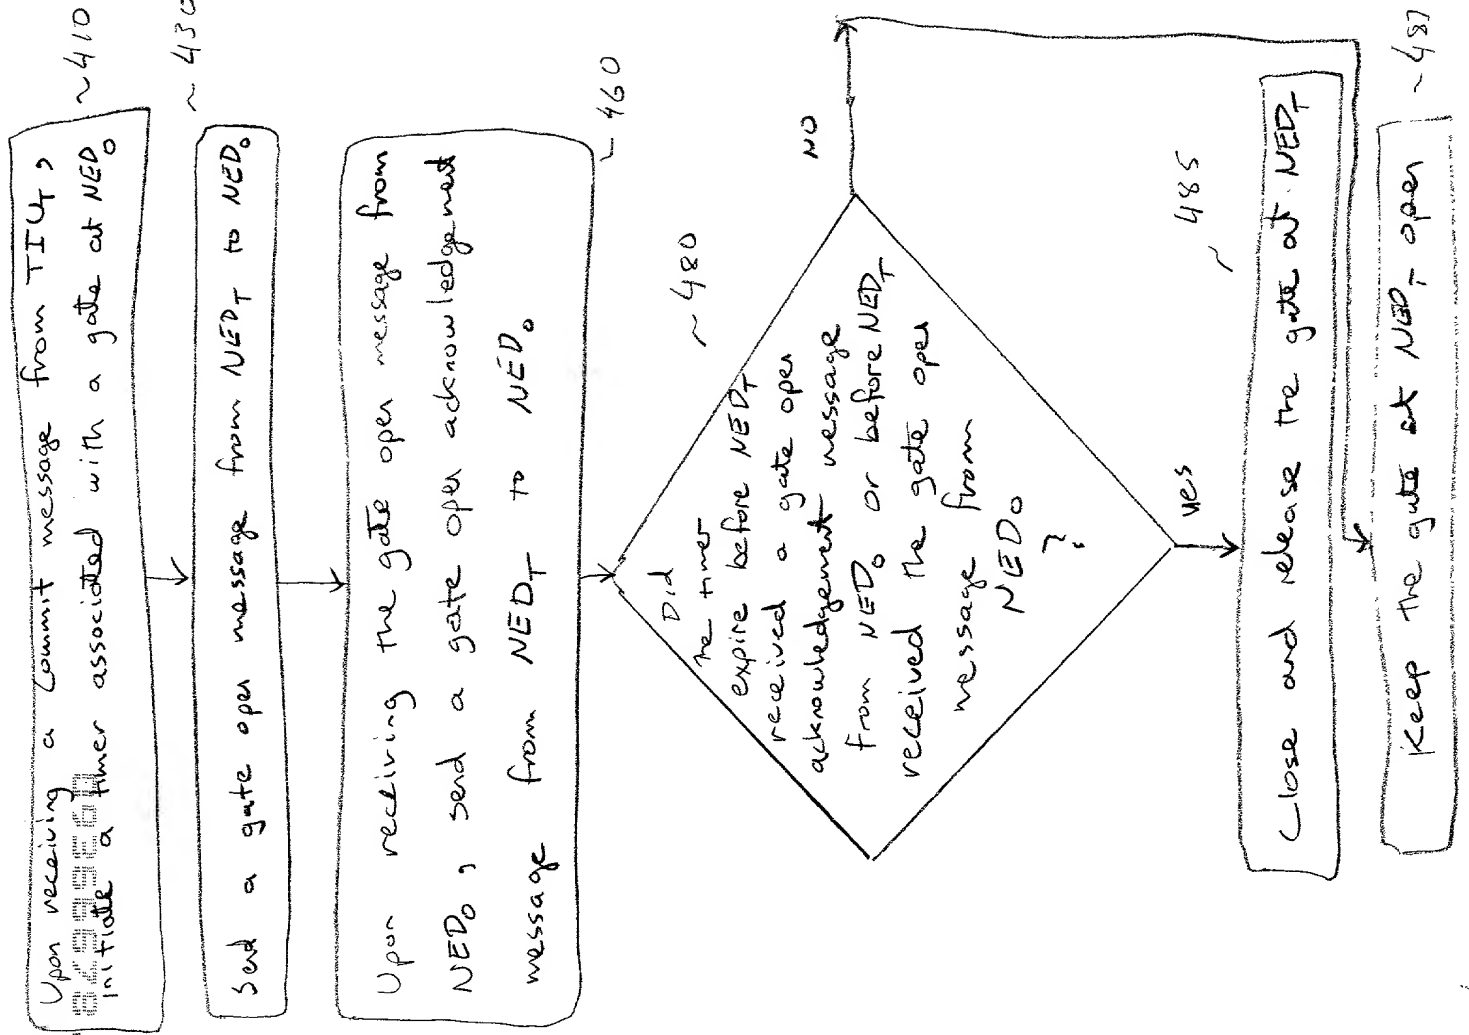 Upon receiving a commit message from TIU_T,
initiate a timer associated with a gate at NED_O
~410
Send a gate open message from NED_T to NED_O
~430
Upon receiving the gate open message from
NED_O, send a gate open acknowledgment
message from NED_T to NED_O
~460
Did
the timer
expire before NED_T
received a gate open
acknowledgement message
from NED_O or before NED_T
received the gate open
message from
NED_O
?
~480
NO
yes
Close and release the gate at NED_T
~485
Keep the gate at NED_T open
~487